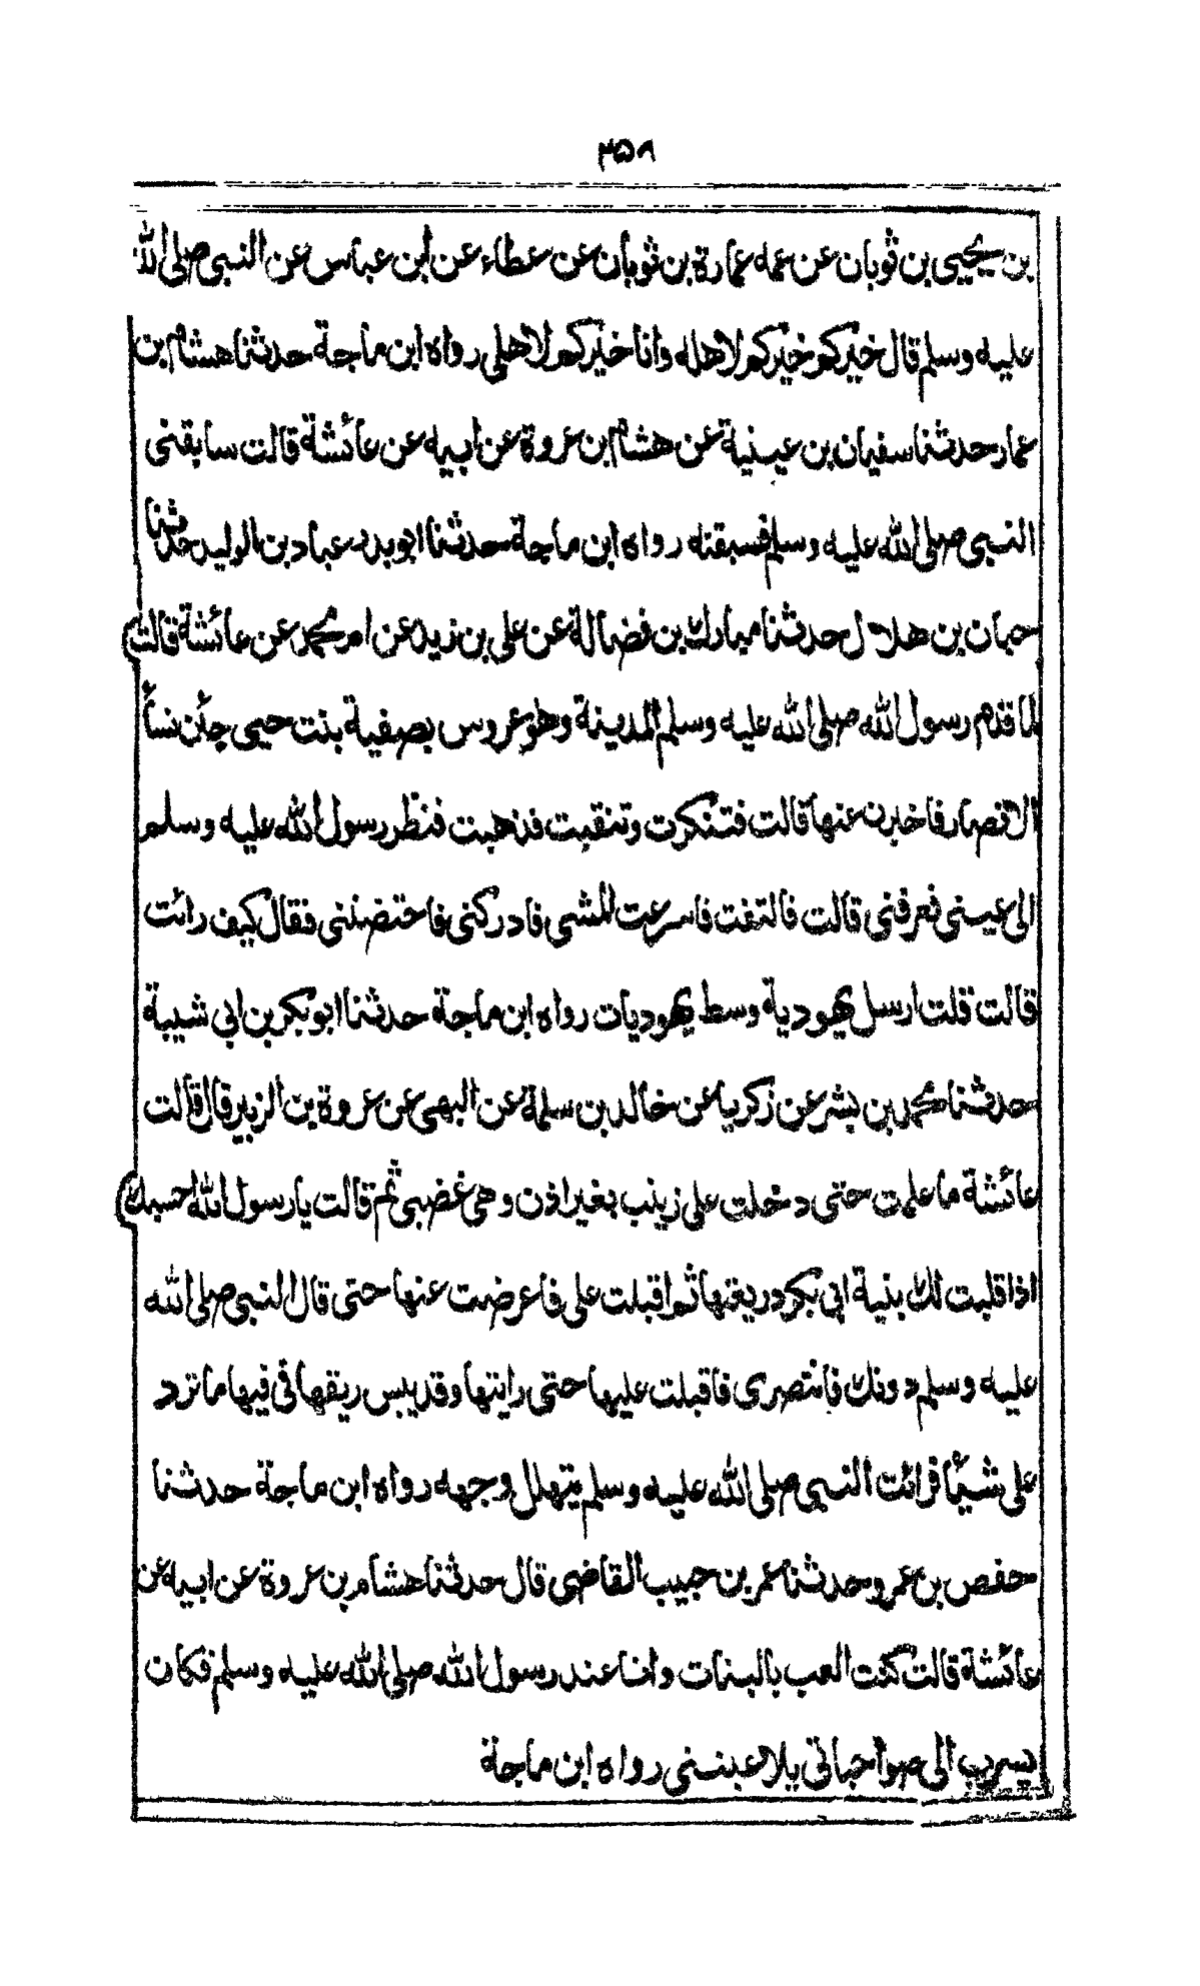 ۳۵۸
بن يحيى بن ثوبان عن عمه عمارة بن ثوبان عن عطاء عن أبن عباس عن النبى صلى الله
عليه وسلم قال خيركم خيركم لاهله وانا خيركم لاهلى رواه ابن ماجة حدثنا هشام ابن
عمار حدثنا سفيان بن عيينة عن هشام ابن عروة عن ابيه عن عائشة قالت سابقنى
النبى صلى الله عليه وسلم فسبقته رواه ابن ماجة حدثنا ابو بدر عباد بن الوليد حدثنا
حبان بن هلال حدثنا مبارك بن فضالة عن على بن زيد عن ام محمد عن عائشة قالت
لما قدم رسول الله صلى الله عليه وسلم المدينة وهو عروس بصفية بنت حيى جئن نسأ
الانصار فاخبرن عنها قالت فتنكرت وتنقبت فذهبت فنظر رسول الله عليه وسلم
الى عينى فعرفنى قالت فالتفت فاسرعت المشى فادركنى فاحتضننى فقال كيف رائت
قالت قلت ارسل يهودية وسط يهوديات رواه ابن ماجة حدثنا ابو بكر بن ابى شيبة
حدثنا محمد بن بشر عن زكريا عن خالد بن سلمة عن البهى عن عروة بن الزبير قال قالت
عائشة ما علمت حتى دخلت على زينب بغير اذن وهى غضبى ثم قالت يا رسول الله احسبك
اذا قلبت لك بنية ابى بكر دريعتها ثم اقبلت على فاعرضت عنها حتى قال النبى صلى الله
عليه وسلم دونك فانتصرى فاقبلت عليها حتى رايتها وقد يبس ريقها فى فيها ما ترد
على شيأ فرائت النبى صلى الله عليه وسلم يتهلل وجهه رواه ابن ماجة حدثنا
حفص بن عمرو حدثنا عمر بن حبيب القاضى قال حدثنا هشام بن عروة عن ابيه عن
عائشة قالت كنت العب بالبنات وانا عند رسول الله صلى الله عليه وسلم فكان
يسرب الى صواحباتى يلاعبننى رواه ابن ماجة